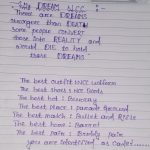 My DREAM NCC :-
There are DREAMS
stronger than DEATH
Some people CONVERT
their into REALITY and
would DIE to hold
these DREAMS
The best outfit NCC uniform
The best shoes : NCC Boots
The best hot : Beuccey
The best place : parade Ground
The best match : Bullet and Rifle
The best home : Barrat
The best pain : Bodily pain
you are selected as Cadet